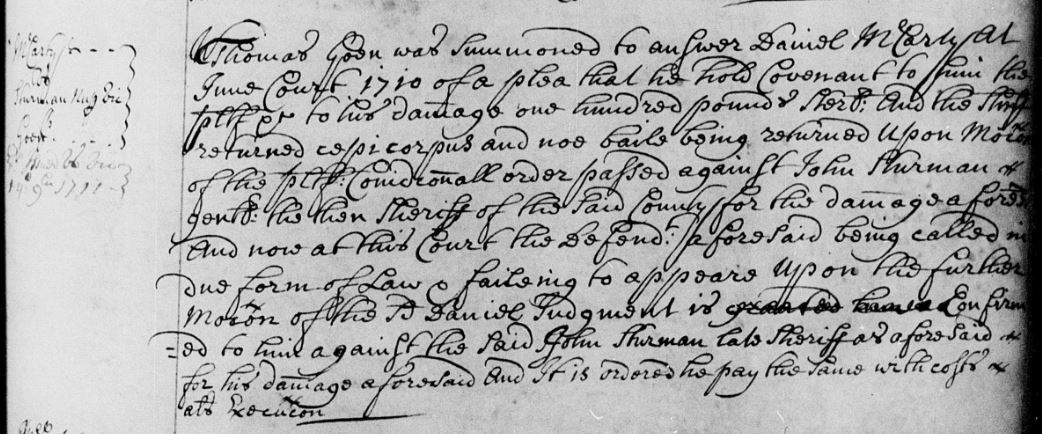 McCarty &
Thomas Goen was summoned to answer Daniel McCarty At
June Court 1710 of a plea that he hold Covenant to him the
pltf &c to his damage one hundred pounds Sterl: And the Sherif
returned cepi corpus and noe baile being returned Upon Moćon
of the pltf: Condiconall order passed against John Sturman &
gentl: the then Sheriff of the said County for the damage aforesd
And now at this Court the Defendt: aforesaid being called in
due form of Law & faileing to appeare Upon the further
Moćon of the sd Daniel Judgment is granted Confirm
=ed to him against the said John Sturman late Sheriff as aforesaid &
for his damage aforesaid And It is ordered he pay the same with costs &
als Execućon